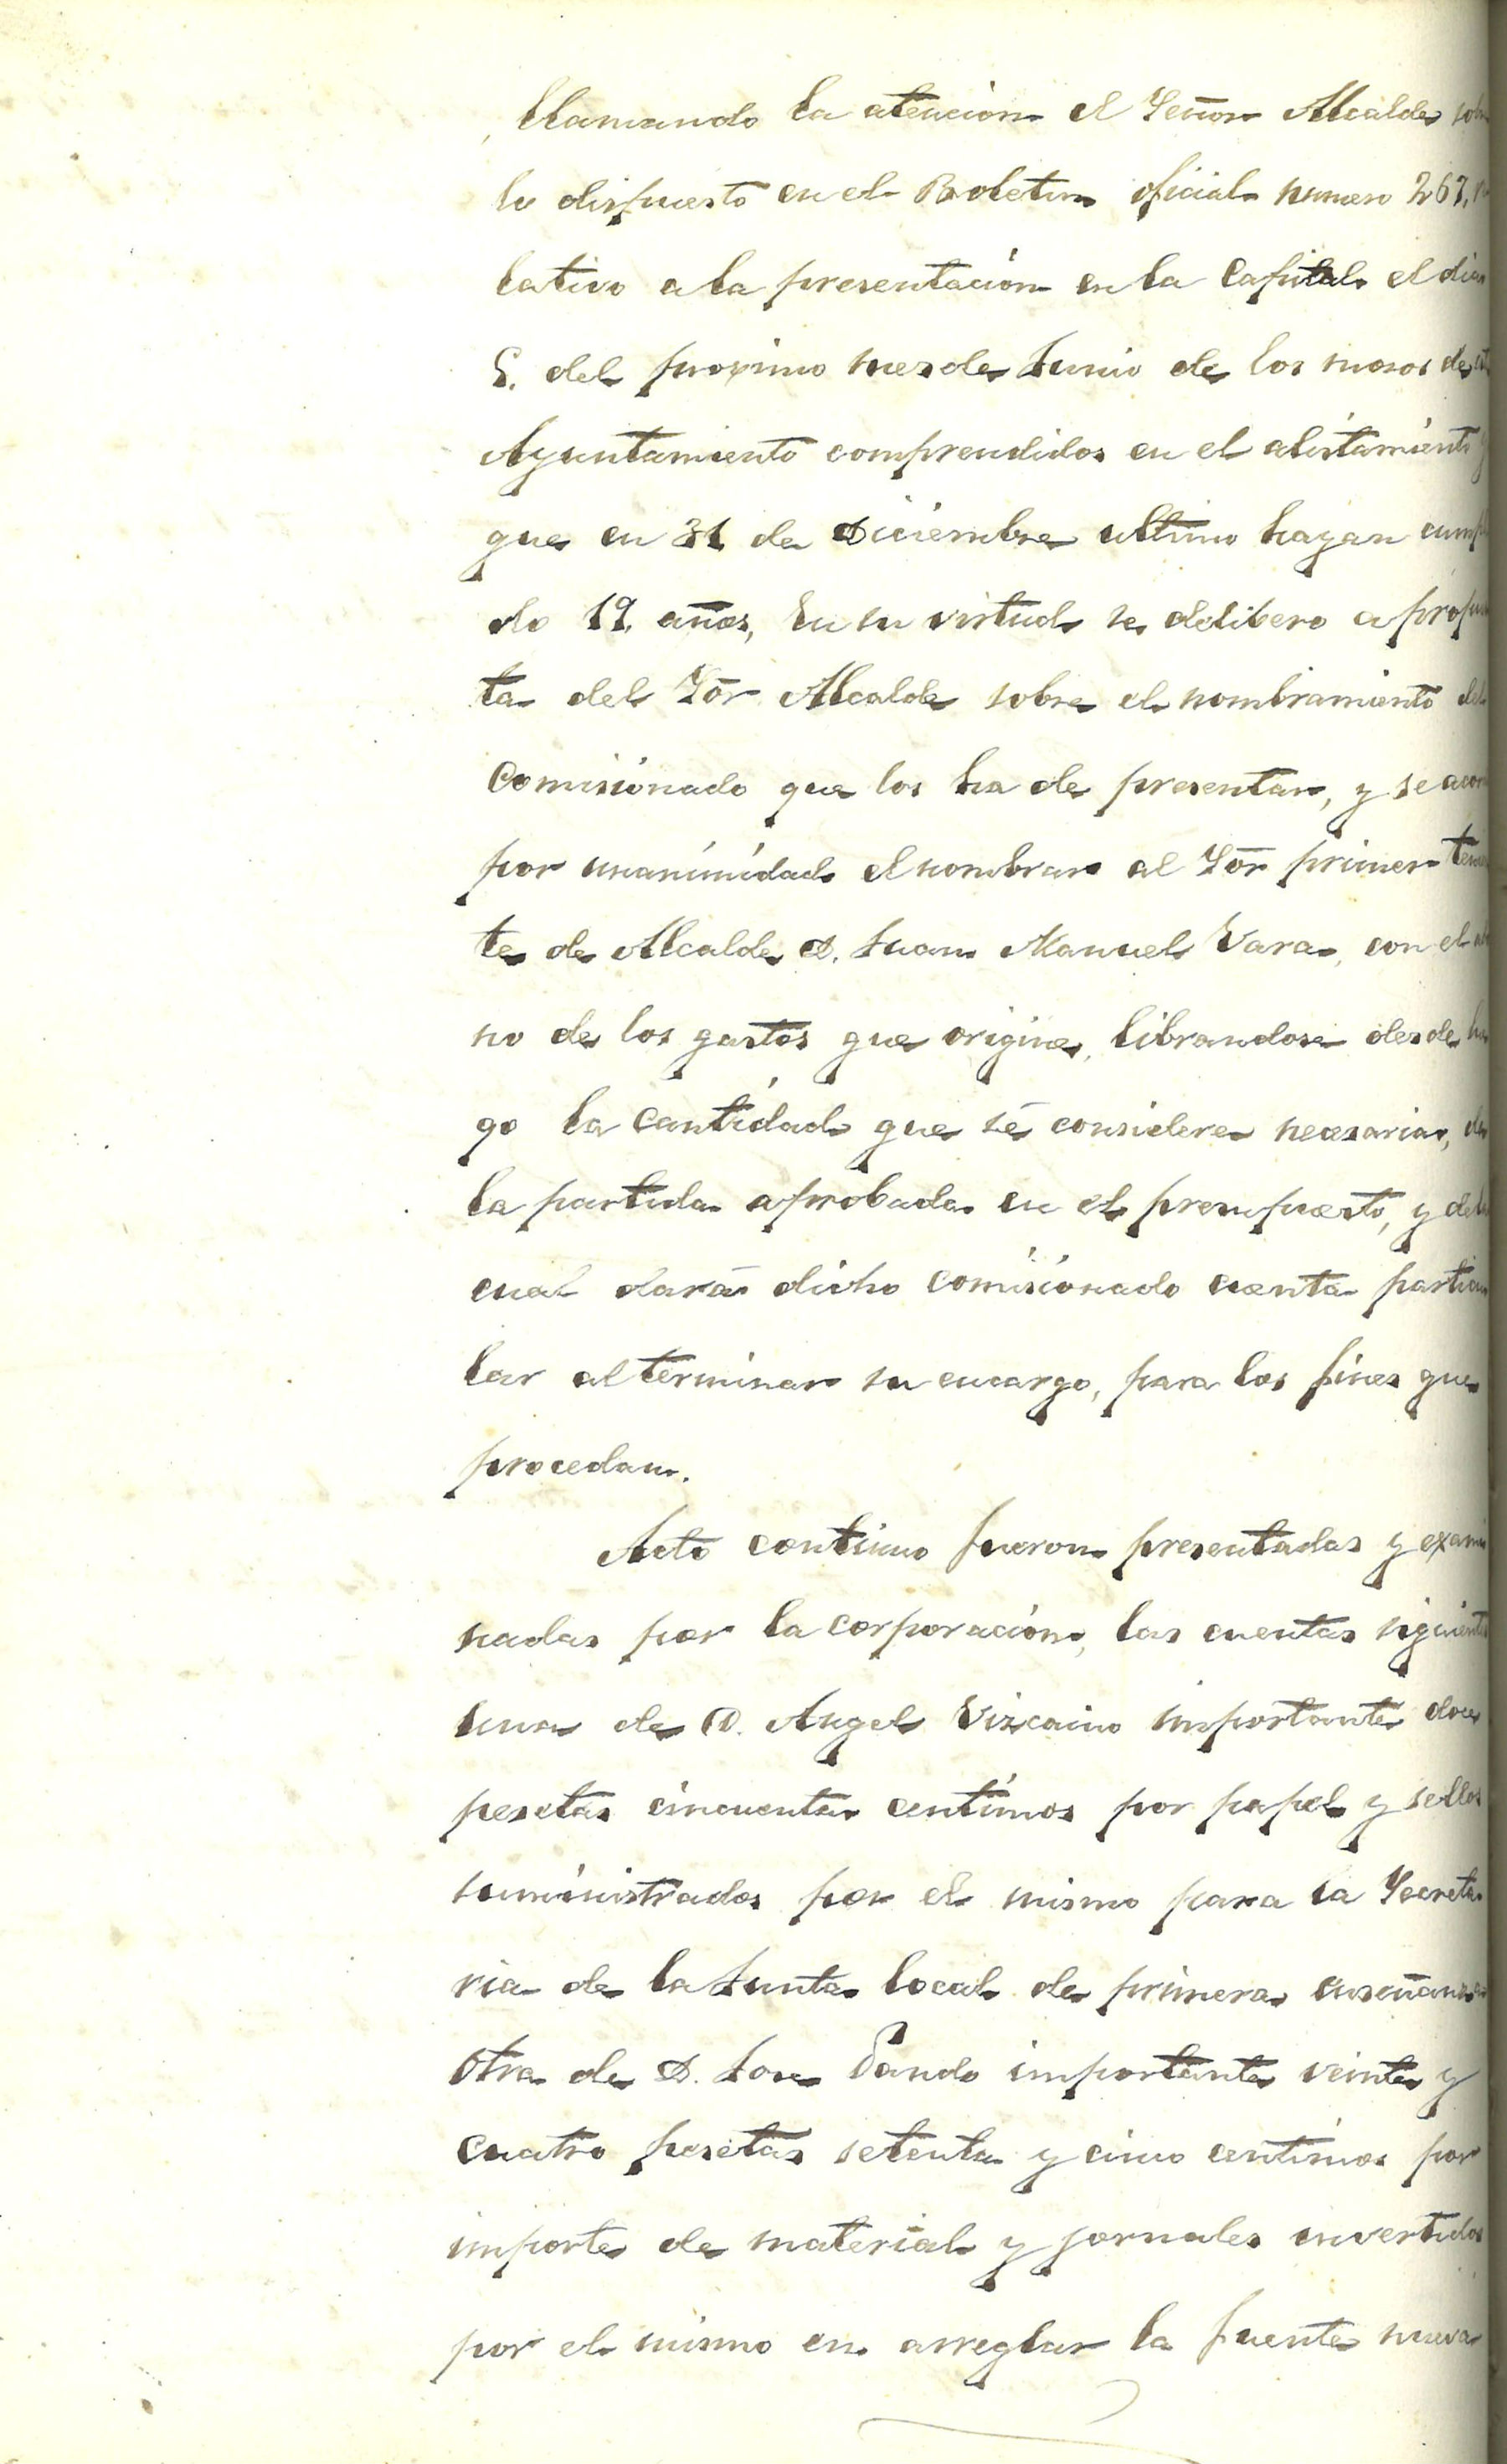 llamando la atencion el Señor Alcalde sobre
lo dispuesto en el Boletin oficial numero 267, re
lativo a la presentación en la Capital el dia
del proximo mes de Junio de los mosos de este
Ayuntamiento comprendidos en el alistamiento y
que en 31 de Diciembre ultimo hayan cumpli
do 19. años, en su virtud se delibero a propues
ta del Sōr Alcalde sobre el nombramiento del
Comisionado que los ha de presentar, y se acordo
por unanimidad el nombrar al Sōr primer tenien
te de Alcalde D. Juan Manuel Vara, con el abo
no de los gastos que origine, librandose desde lue
go la Cantidad que sé considere necesaria, de
la partida aprobada en el presupuesto, y de la
cual dará dicho comisionado cuenta particu
lar al terminar su encargo, para los fines que
procedan.
Acto continuo fueron presentadas y exami
nadas por la corporación, las cuentas siguientes
una de D. Angel Vizcaino importante doce
pesetas cincuenta centimos por papel y sellos
suministrados por el mismo para la Secreta
ria de la Junta local de primera enseñanza
Otra de D. Jose Pando importante veinte y
cuatro pesetas setenta y cinco centimos por
importe de material y jornales invertidos
por el mismo en arreglar la fuente nueva